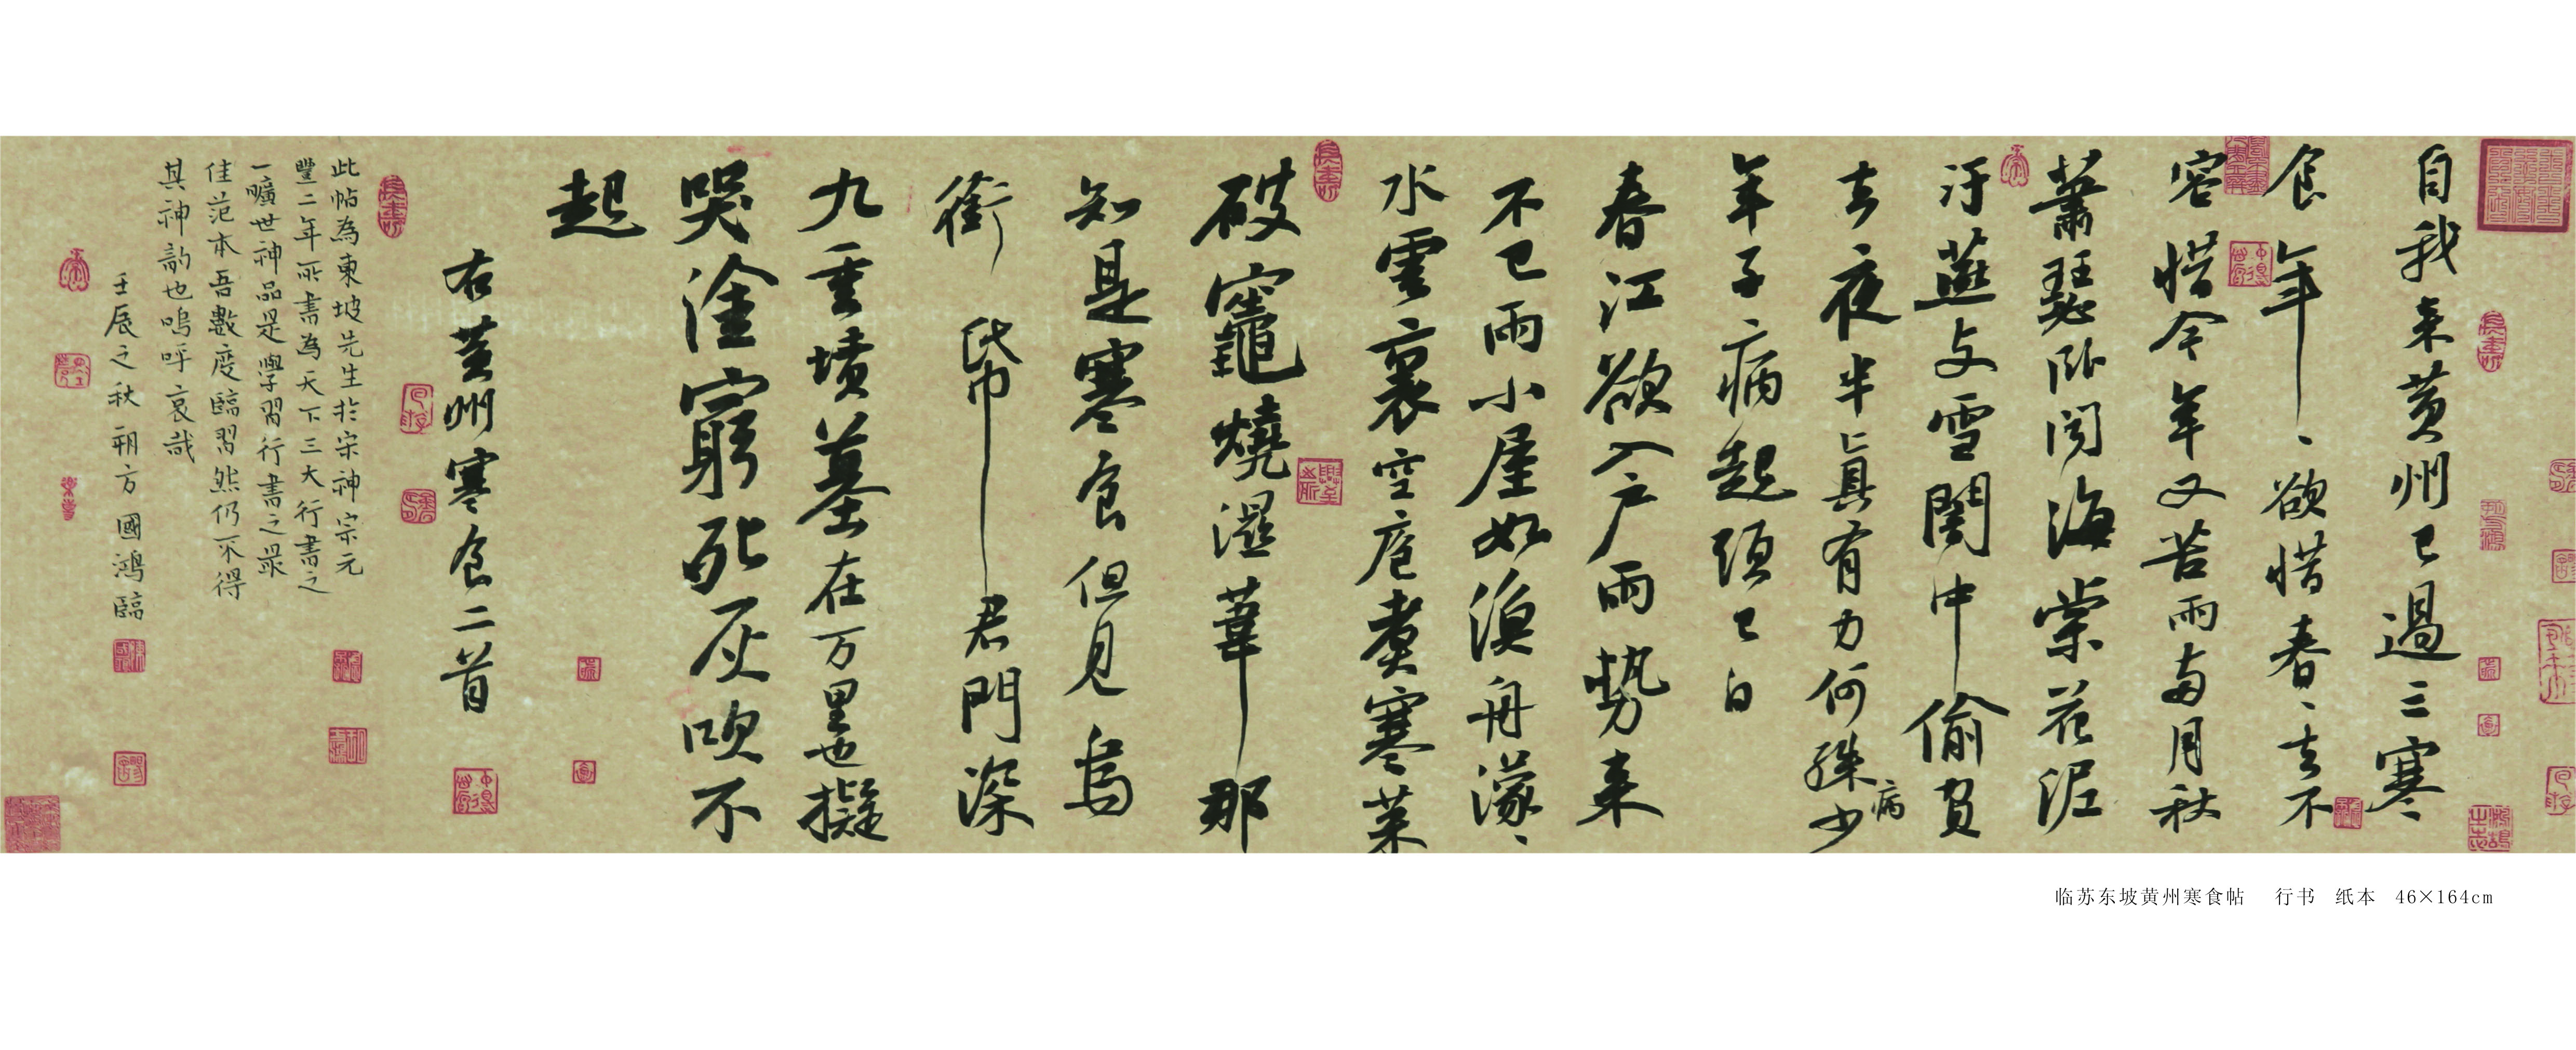 自我来黄州已過三寒
食年、欲惜春、去不
容惜今年又苦雨兩月秋
蕭瑟卧聞海棠花泥
汙燕支雪闇中偷負
去夜半真有力何殊少
病
年子病起頭已白
春江欲入户雨勢来
不已雨小屋如漁舟濛、
水雲裏空庖煮寒菜
破竈燒濕葦那
知是寒食但見烏
銜帋君門深
九重墳墓在万里也擬
哭塗窮死灰吹不
起
右黄州寒食二首
此帖為東坡先生於宋神宗元
豐二年所書為天下三大行書之
一曠世神品是學習行書之最
佳范本吾數度臨習然仍不得
其神韵也嗚呼哀哉
壬辰之秋朔方國鴻臨
临苏东坡黄州寒食帖 行书 纸本 46×164cm